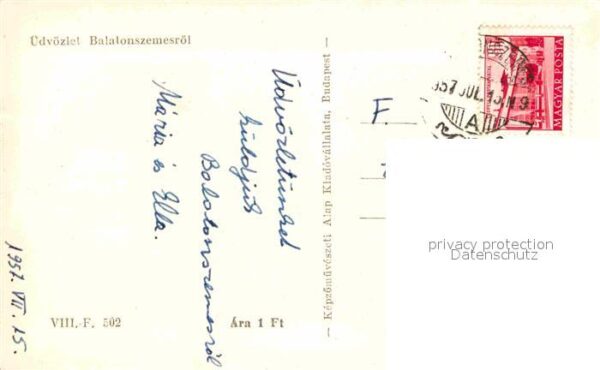 Üdvözlet Balatonszemesről
Üdvözletünket
küldjük
Balatonszemesről
Mária és Ella.
1957. VII. 15.
VIII.-F. 502
Ára 1 Ft
— Képzőművészeti Alap Kiadóvállalata, Budapest —
F.
MAGYAR POSTA
957 JUL. 15
A
privacy protection
Datenschutz